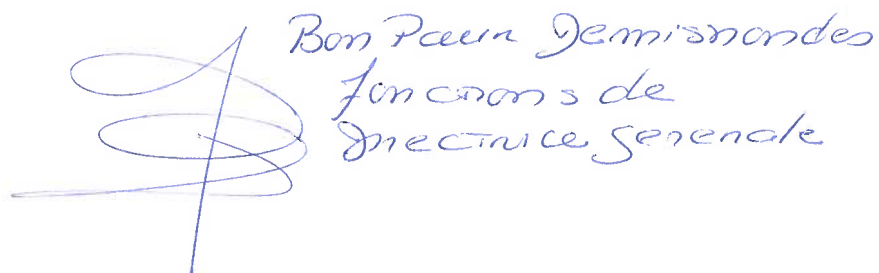 Bon Pour Demission des
fonctions de
Directrice generale